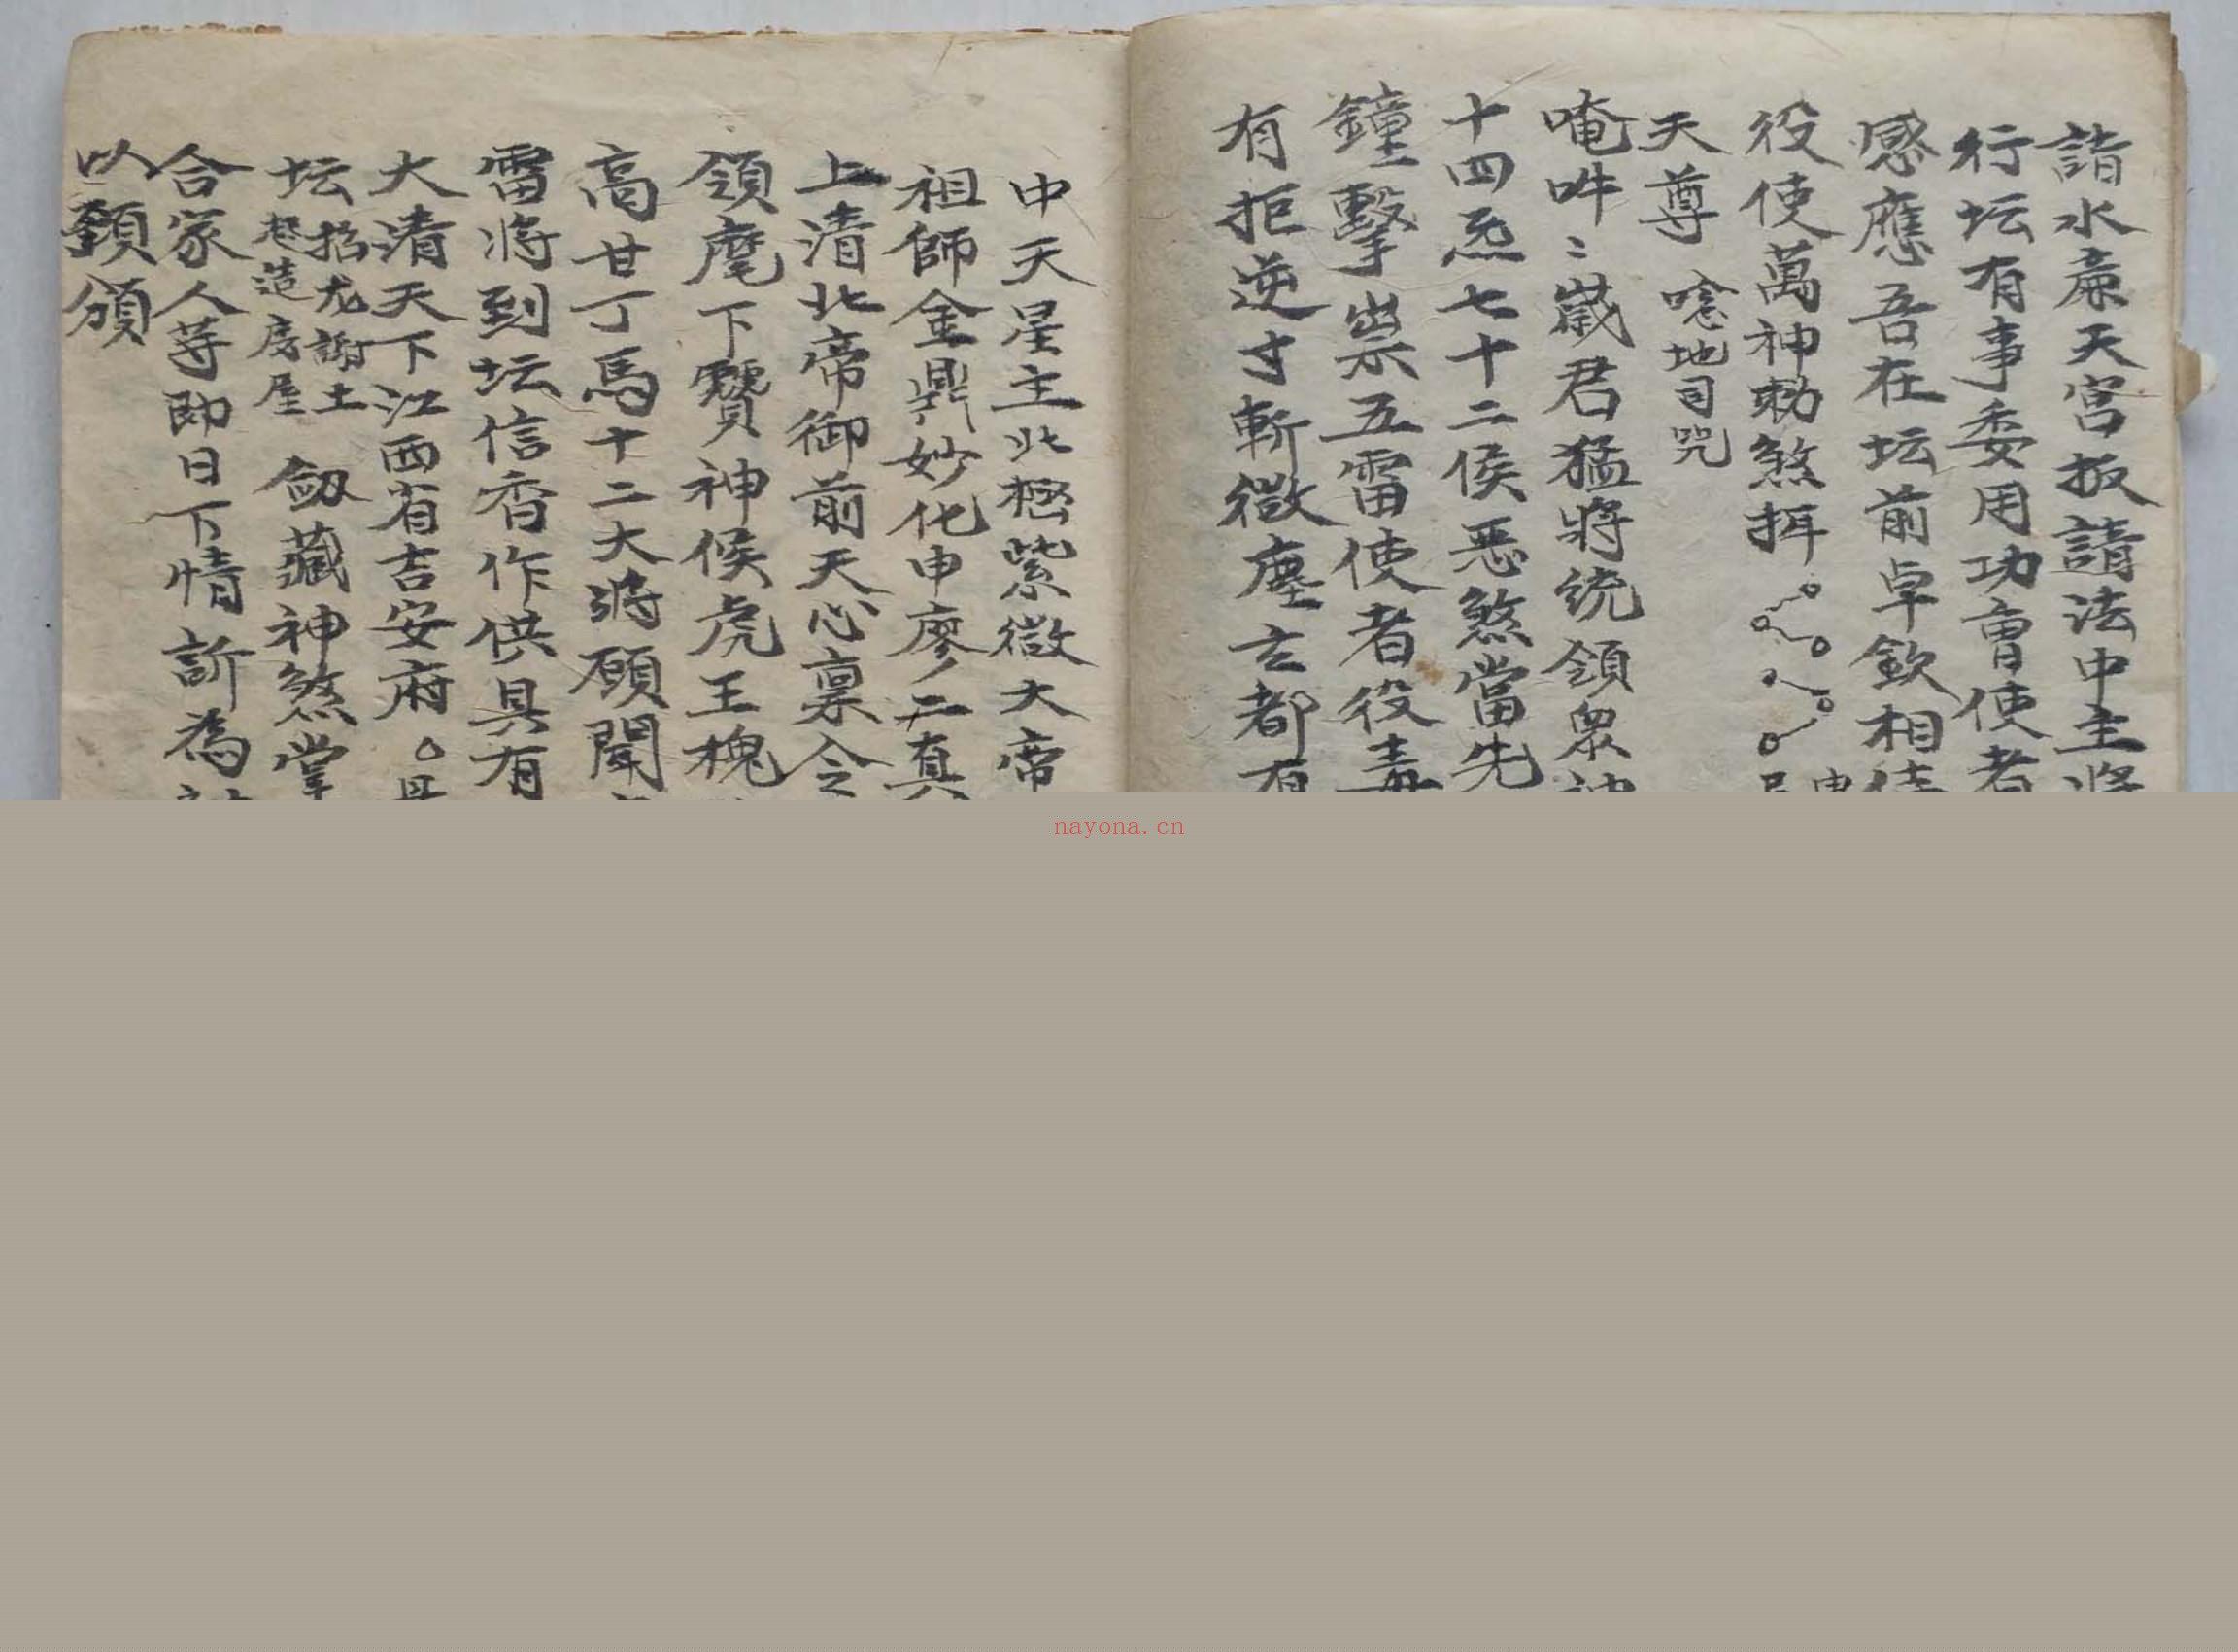 詣水帘天宫扳請法中主將
行坛有事委用功曹使者
感應吾在坛前卓欽相
役使萬神勅煞挕
天尊 唸地司咒
唵吽〻歲君猛將统領眾神
十四炁七十二侯恶煞當先
鐘擊祟五雷使者役毒
有拒逆寸斬微塵玄都有
中天星主北極紫微大帝
祖師金鼎妙化申廖二真
上清北帝御前天心禀令
領麾下寳神候虎王槐
高甘丁馬十二大將願聞
雷将到坛信香作供具有
大清天下江西省吉安府
坛 招龙謝土 起造房屋 劔藏神煞掌
合家人等即日下情訴為
以頖頒
nayona.cn